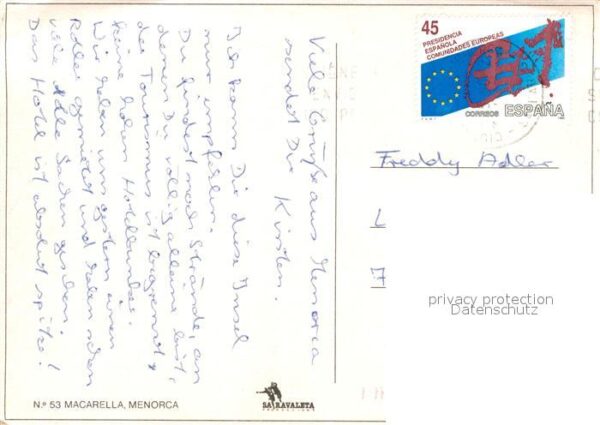 45
PRESIDENCIA
ESPAÑOLA
COMUNIDADES EUROPEAS
CORREOS ESPAÑA
Viele Grüße aus Menorca
sendet Dir Kirsten.
Ich kann Dir diese Insel
nur empfehlen.
Du findest noch Strände, an
denen Du völlig alleine bist,
der Tourismus ist begrenzt,
keine hohen Hotelbunker.
Wir haben uns gestern einen
Roller gemietet und haben schon
viele tolle Sachen gesehen.
Das Hotel ist absolut spitze!
Freddy Adler
L
privacy protection
Datenschutz
N.º 53 MACARELLA, MENORCA
SA RAVALETA